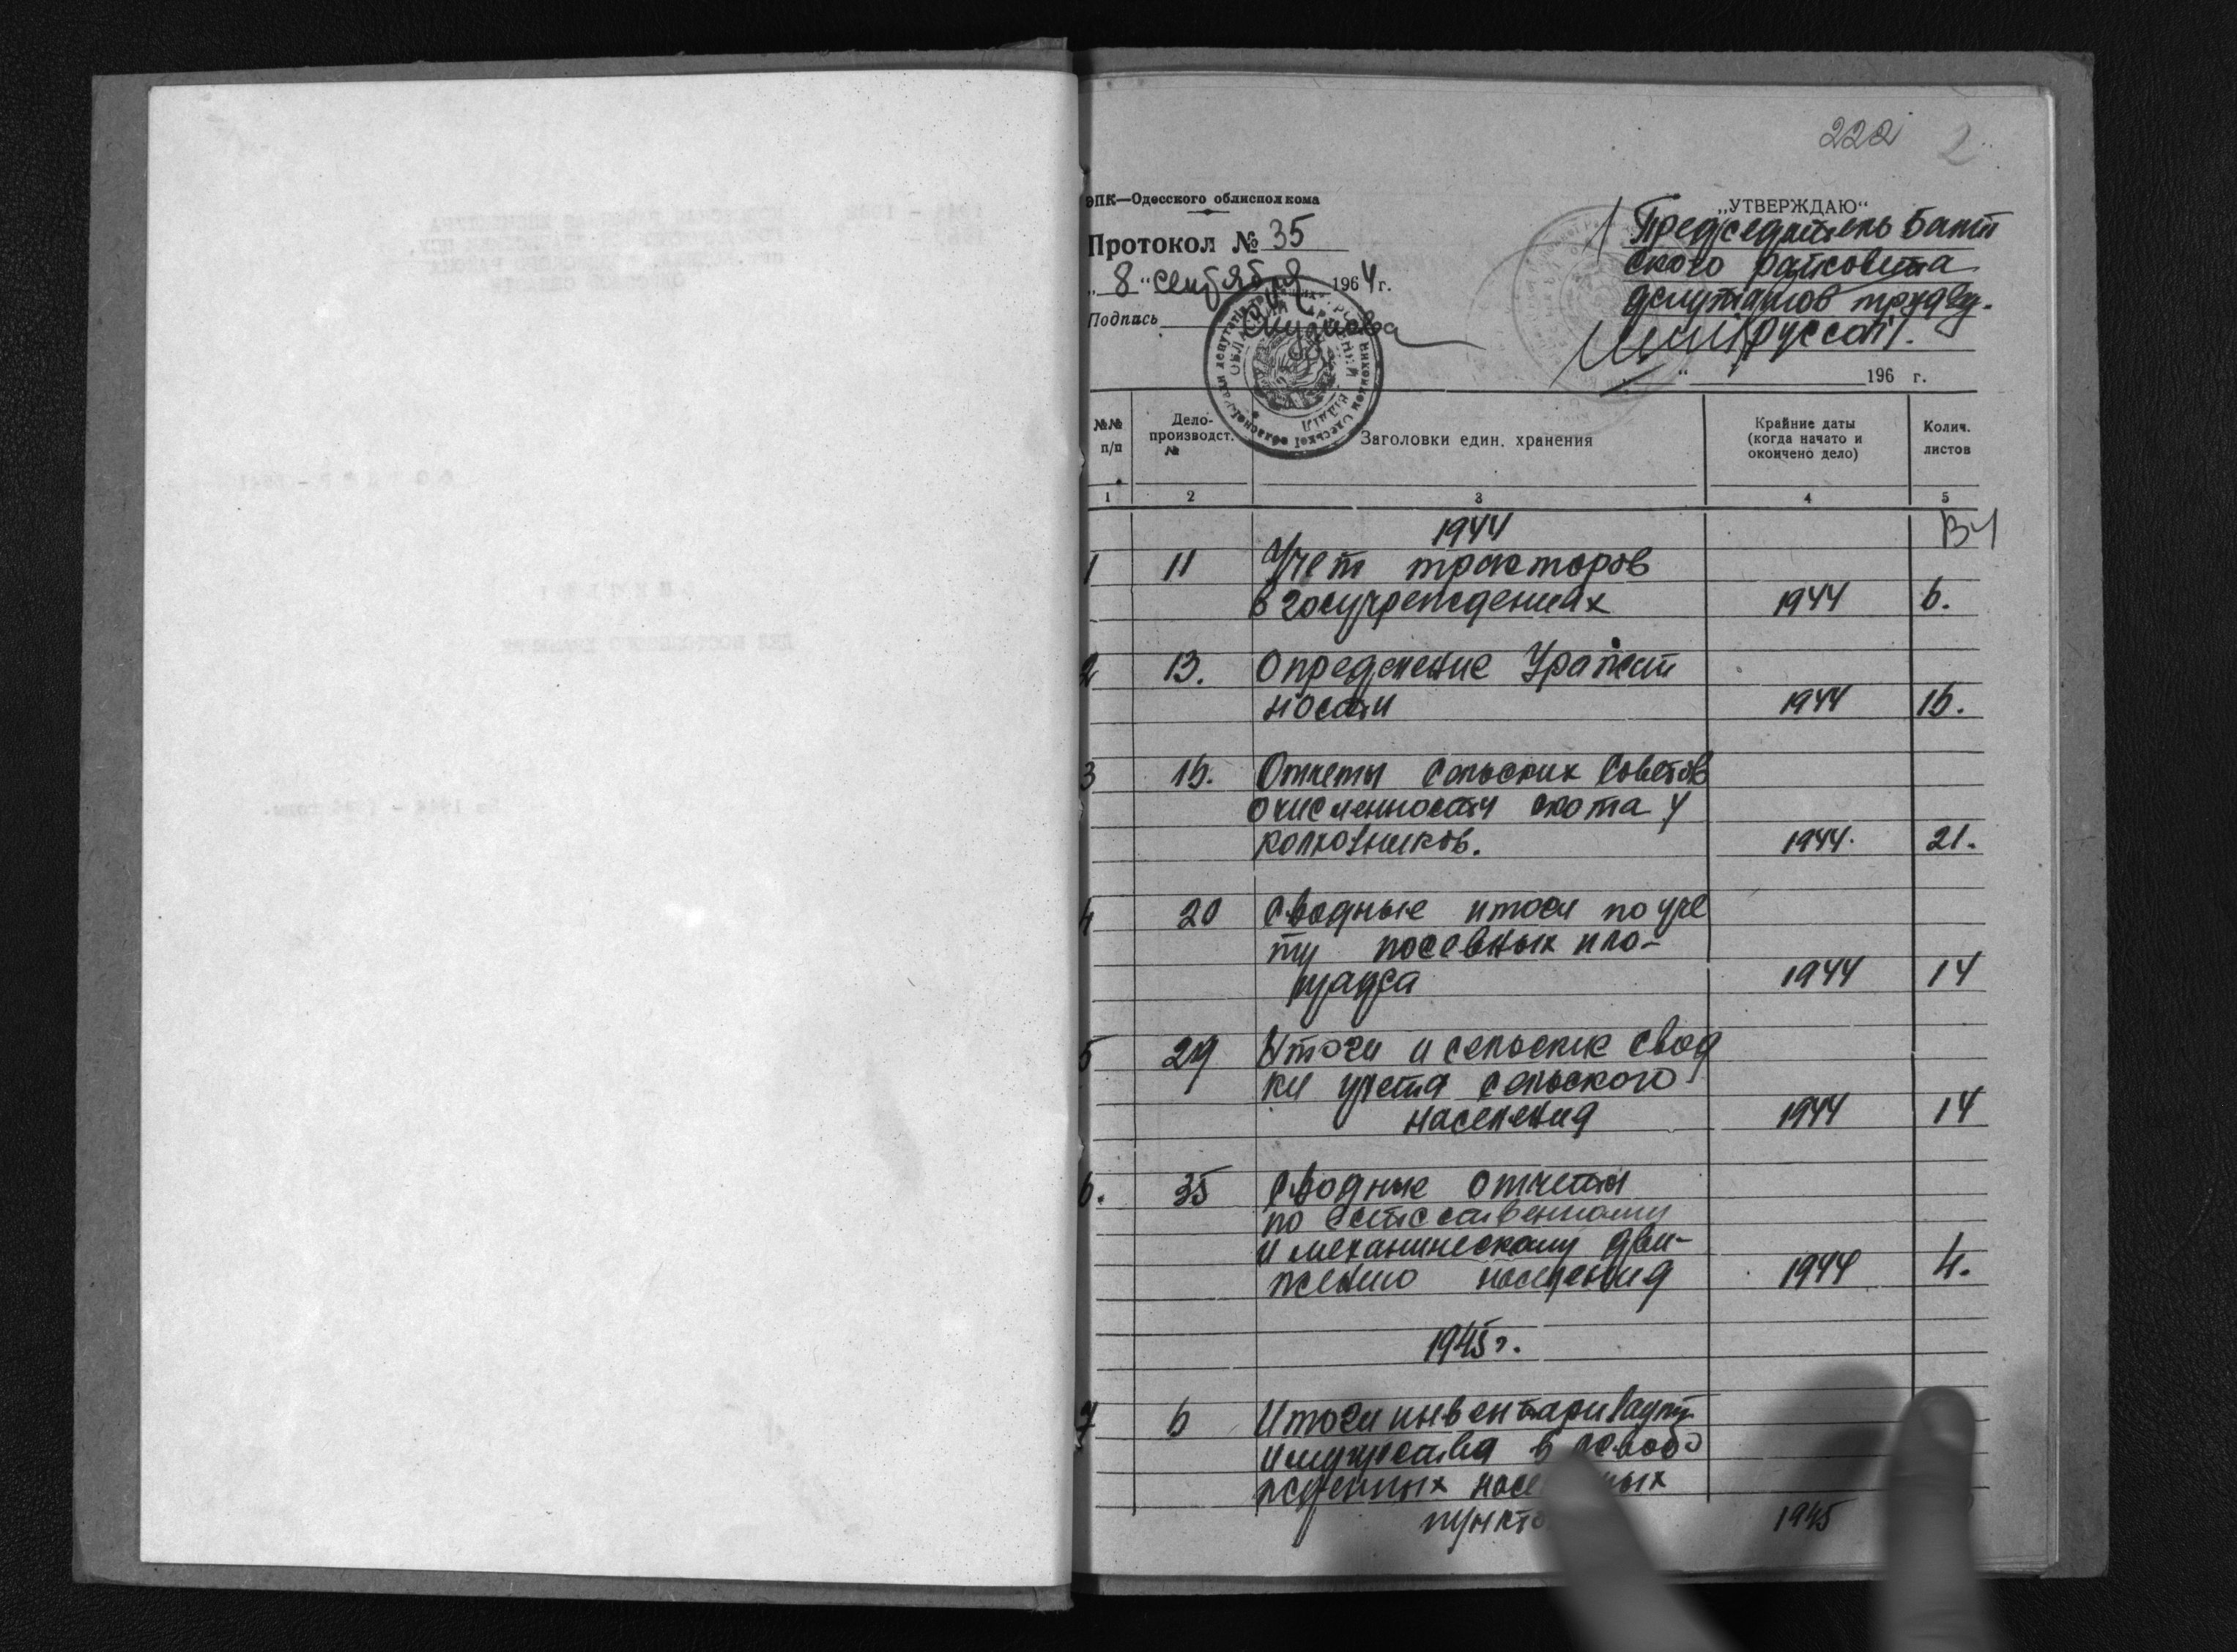 222 2
ЭПК—Одесского облисполкома
Протокол № 35
„ 8 " сентября 1964 г.
Подпись
„УТВЕРЖДАЮ“
Председатель Балт
ского райсовета
депутатов трудящ.
196 г.
№№ п/п
Дело-
производст.
№
Заголовки един. хранения
Крайние даты
(когда начато и
окончено дело)
Колич.
листов
1 2 3 4 5
1944
1 11 Учет тракторов
в госучреждениях 1944 6.
2 13. Определение Урожай
ности 1944 16.
3 16. Отчеты сельских советов
о численности скота у
колхозников. 1944. 21.
4 20 Сводные итоги по уче
ту посевных пло-
щадей 1944 14
5 29 Итоги и сельские свод
ки учета сельского
населения 1944 14
6. 35 Сводные отчеты
по естественному
и механическому дви-
жению населения 1944 4.
1945 г.
7 6 Итоги инвентаризации
имущества в освобо
жденных населенных
пункт 1945